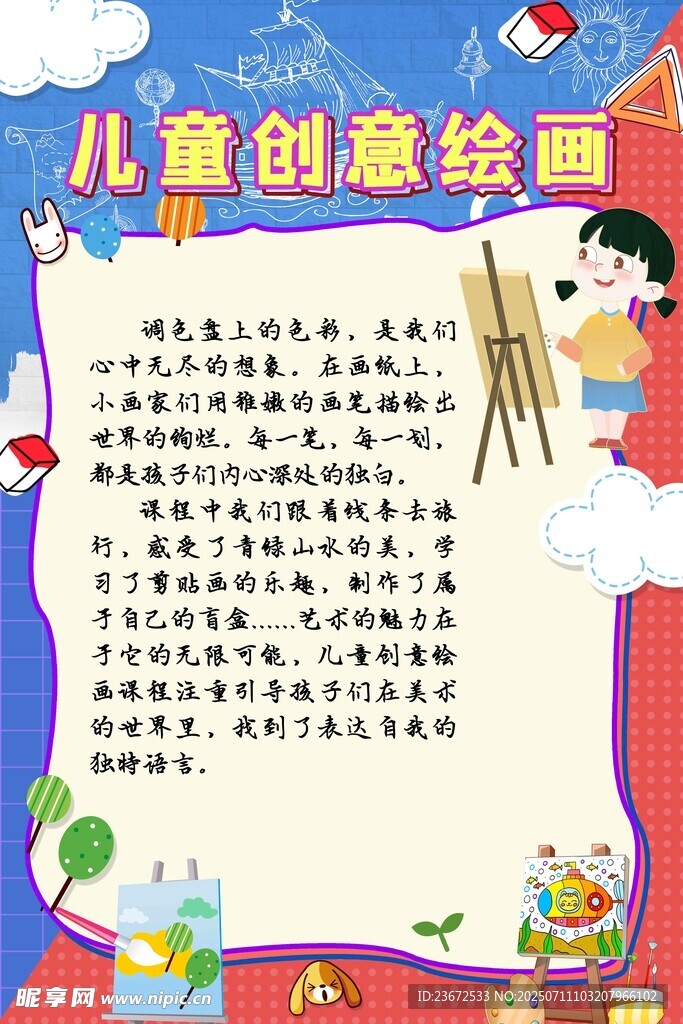 儿童创意绘画
调色盘上的色彩，是我们
心中无尽的想象。在画纸上，
小画家们用稚嫩的画笔描绘出
世界的绚烂。每一笔，每一划，
都是孩子们内心深处的独白。
课程中我们跟着线条去旅
行，感受了青绿山水的美，学
习了剪贴画的乐趣，制作了属
于自己的盲盒......艺术的魅力在
于它的无限可能，儿童创意绘
画课程注重引导孩子们在美术
的世界里，找到了表达自我的
独特语言。
昵享网 www.nipic.cn
ID:23672533 NO:20250711103207966102